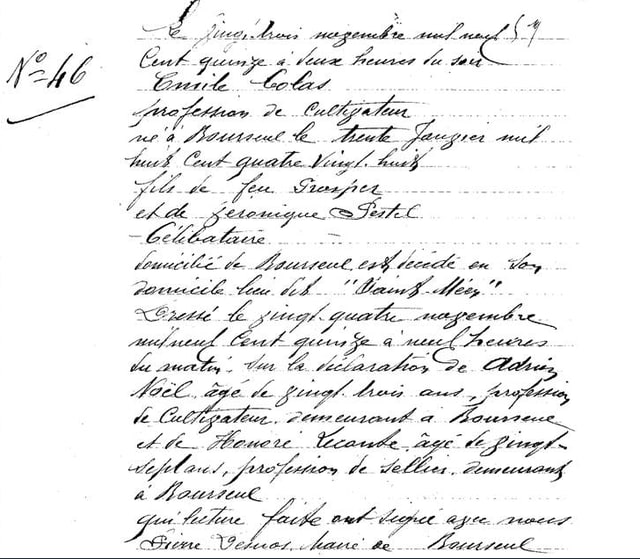 Le vingt-trois novembre mil neuf
Cent quinze à deux heures du soir
N° 46
Emile Colas
profession de Cultivateur
né à Bourseul le trente Janvier mil
huit Cent quatre vingt. huit
fils de feu Prosper
et de Véronique Pestel
- Célibataire
domicilié de Bourseul est décédé en son
domicile lieu dit "Saint-Méen"
Dressé le vingt. quatre novembre
mil neuf Cent quinze à neuf heures
du matin, sur la déclaration de Adrien
Noël, âgé de vingt. trois ans, profession
de Cultivateur, demeurant à Bourseul
et de Honoré Lecomte âgé de vingt-
sept ans, profession de sellier, demeurant
à Bourseul
qui lecture faite ont signé avec nous
Pierre Maire de Bourseul